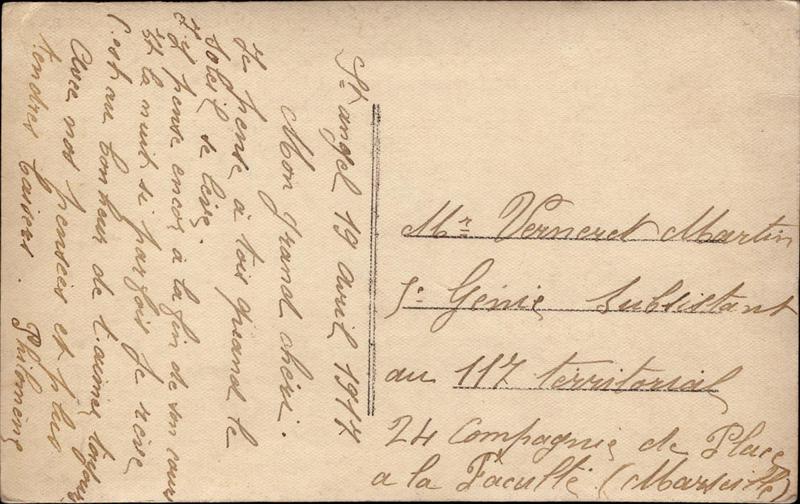 St angel 19 avril 1917
Mon grand chéri.
Je pense à tois quand le
Soleil se lève.
Et j'y pense encor à la fin de son cours
Et la nuit si parfois je rêve
c'est au bonheur de t'aimé toujours
Avec nos pensées et plus
tendres baisers. Philomène
Mr Verneret Martin
5e Génie Subsistant
au 117 territorial
24 Compagnie de Place
a la Faculté (Marseille)